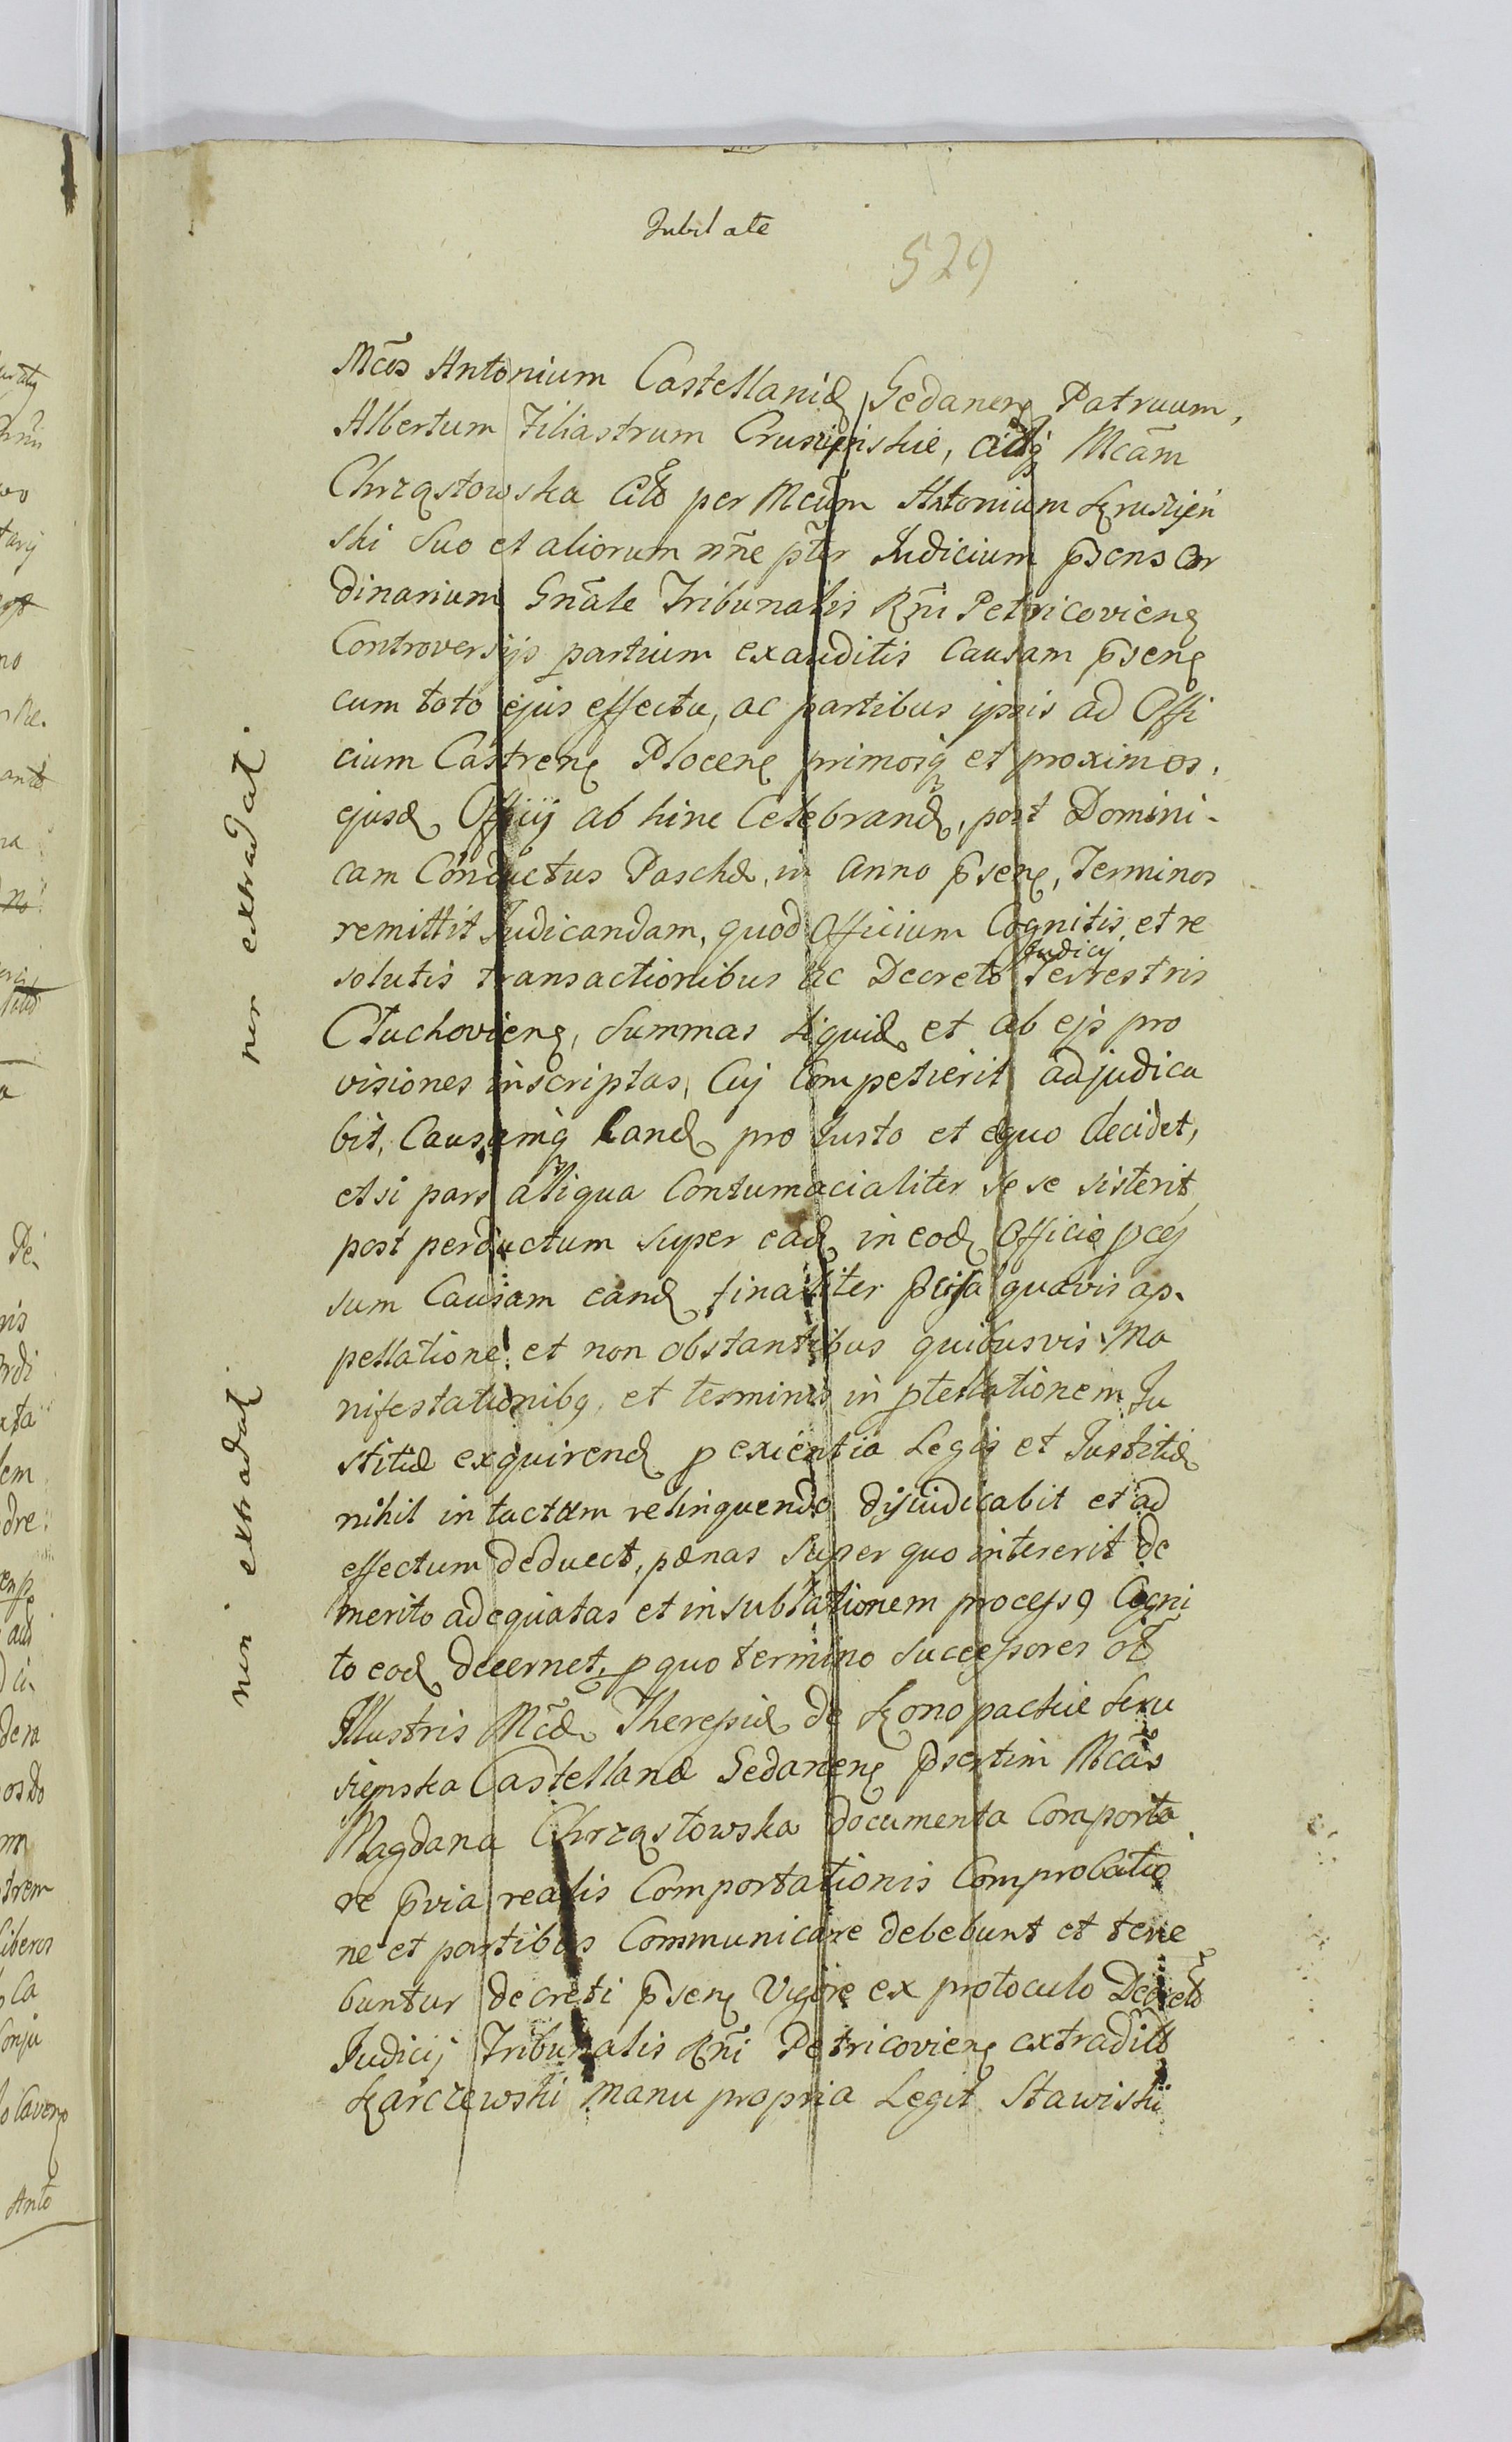 Jubilate
529
Mcos Antonium Castellanid Gedanens Patruum,
Albertum Filiastrum Crusiynskie, Mcam
Chrząstowska per Mcum Antonium Krusiyń
ski Suo et aliorum nne pter Judicium psens or
dinarium Gnale Tribunalis Rni Petricoviens
Controversijs partium exauditis Causam psens
cum toto ejus effectu, ac partibus ipsis ad Offi
cium Castrens Plocens primosq et proximos,
ejusd Officij ab hinc Celebrand, post Domini-
cam Conductus Paschæ, in Anno psens, Terminos
remittit Judicandam, quod Officium Cognitis et re
solutis transactionibus ac Decreto Judicij Terrestris
Cluchoviens, Summas liquid et ab ejs pro
visiones inscriptas, Cuj Competierit adjudica
bit, Causamq eand pro Justo et æquo decidet,
et si pars aliqua Contumacialiter se se sisterit
post perductum super ead in eod Officio pces
sum Causam eand finaliter quavis ap-
pellatione et non obstantibus quibusvis Ma
nifestationibq, et terminis in ptellationem Ju
stitiæ exquirend p exientia Legis et Justitiæ
nihil intactum relinquendo dijudicabit et ad
effectum deducet, pænas super quo intererit de
merito adequatas et in sublationem process9 Cogni
to eod decernet, p quo termino successores ol
Illustris Mcæ Theressiæ de Konopackie Kru
siynska Castellanæ Gedanens psertim Mcas
Magdana Chrząstowska documenta Comporta
re pvia realis Comportationis Comprobatio
ne et partibus Communicare debebunt et tene
buntur decreti psens Vigore ex protoculo Decreto
Judicij Tribunalis Rni Petricoviens extradit
Karczewski manu propria Legit Stawiski
non extradat.
non extradat.